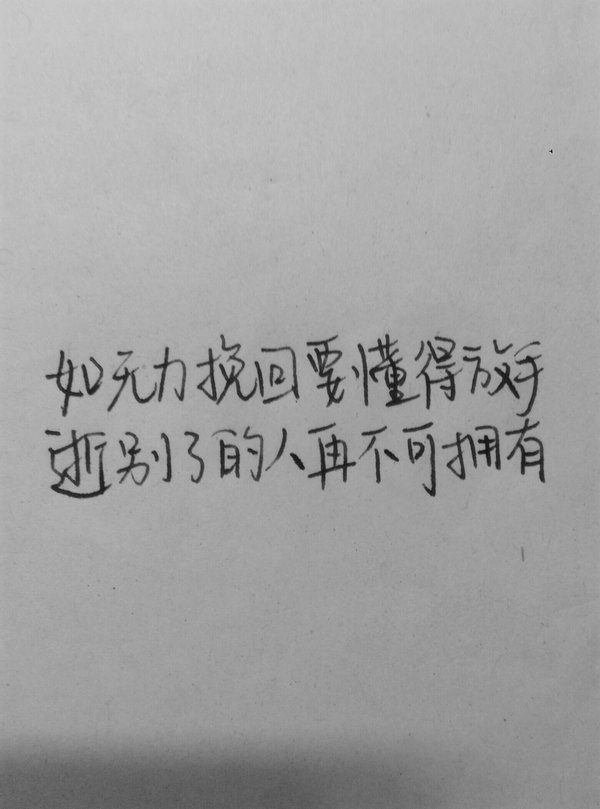 如无力挽回要懂得放手
逝别了的人再不可拥有